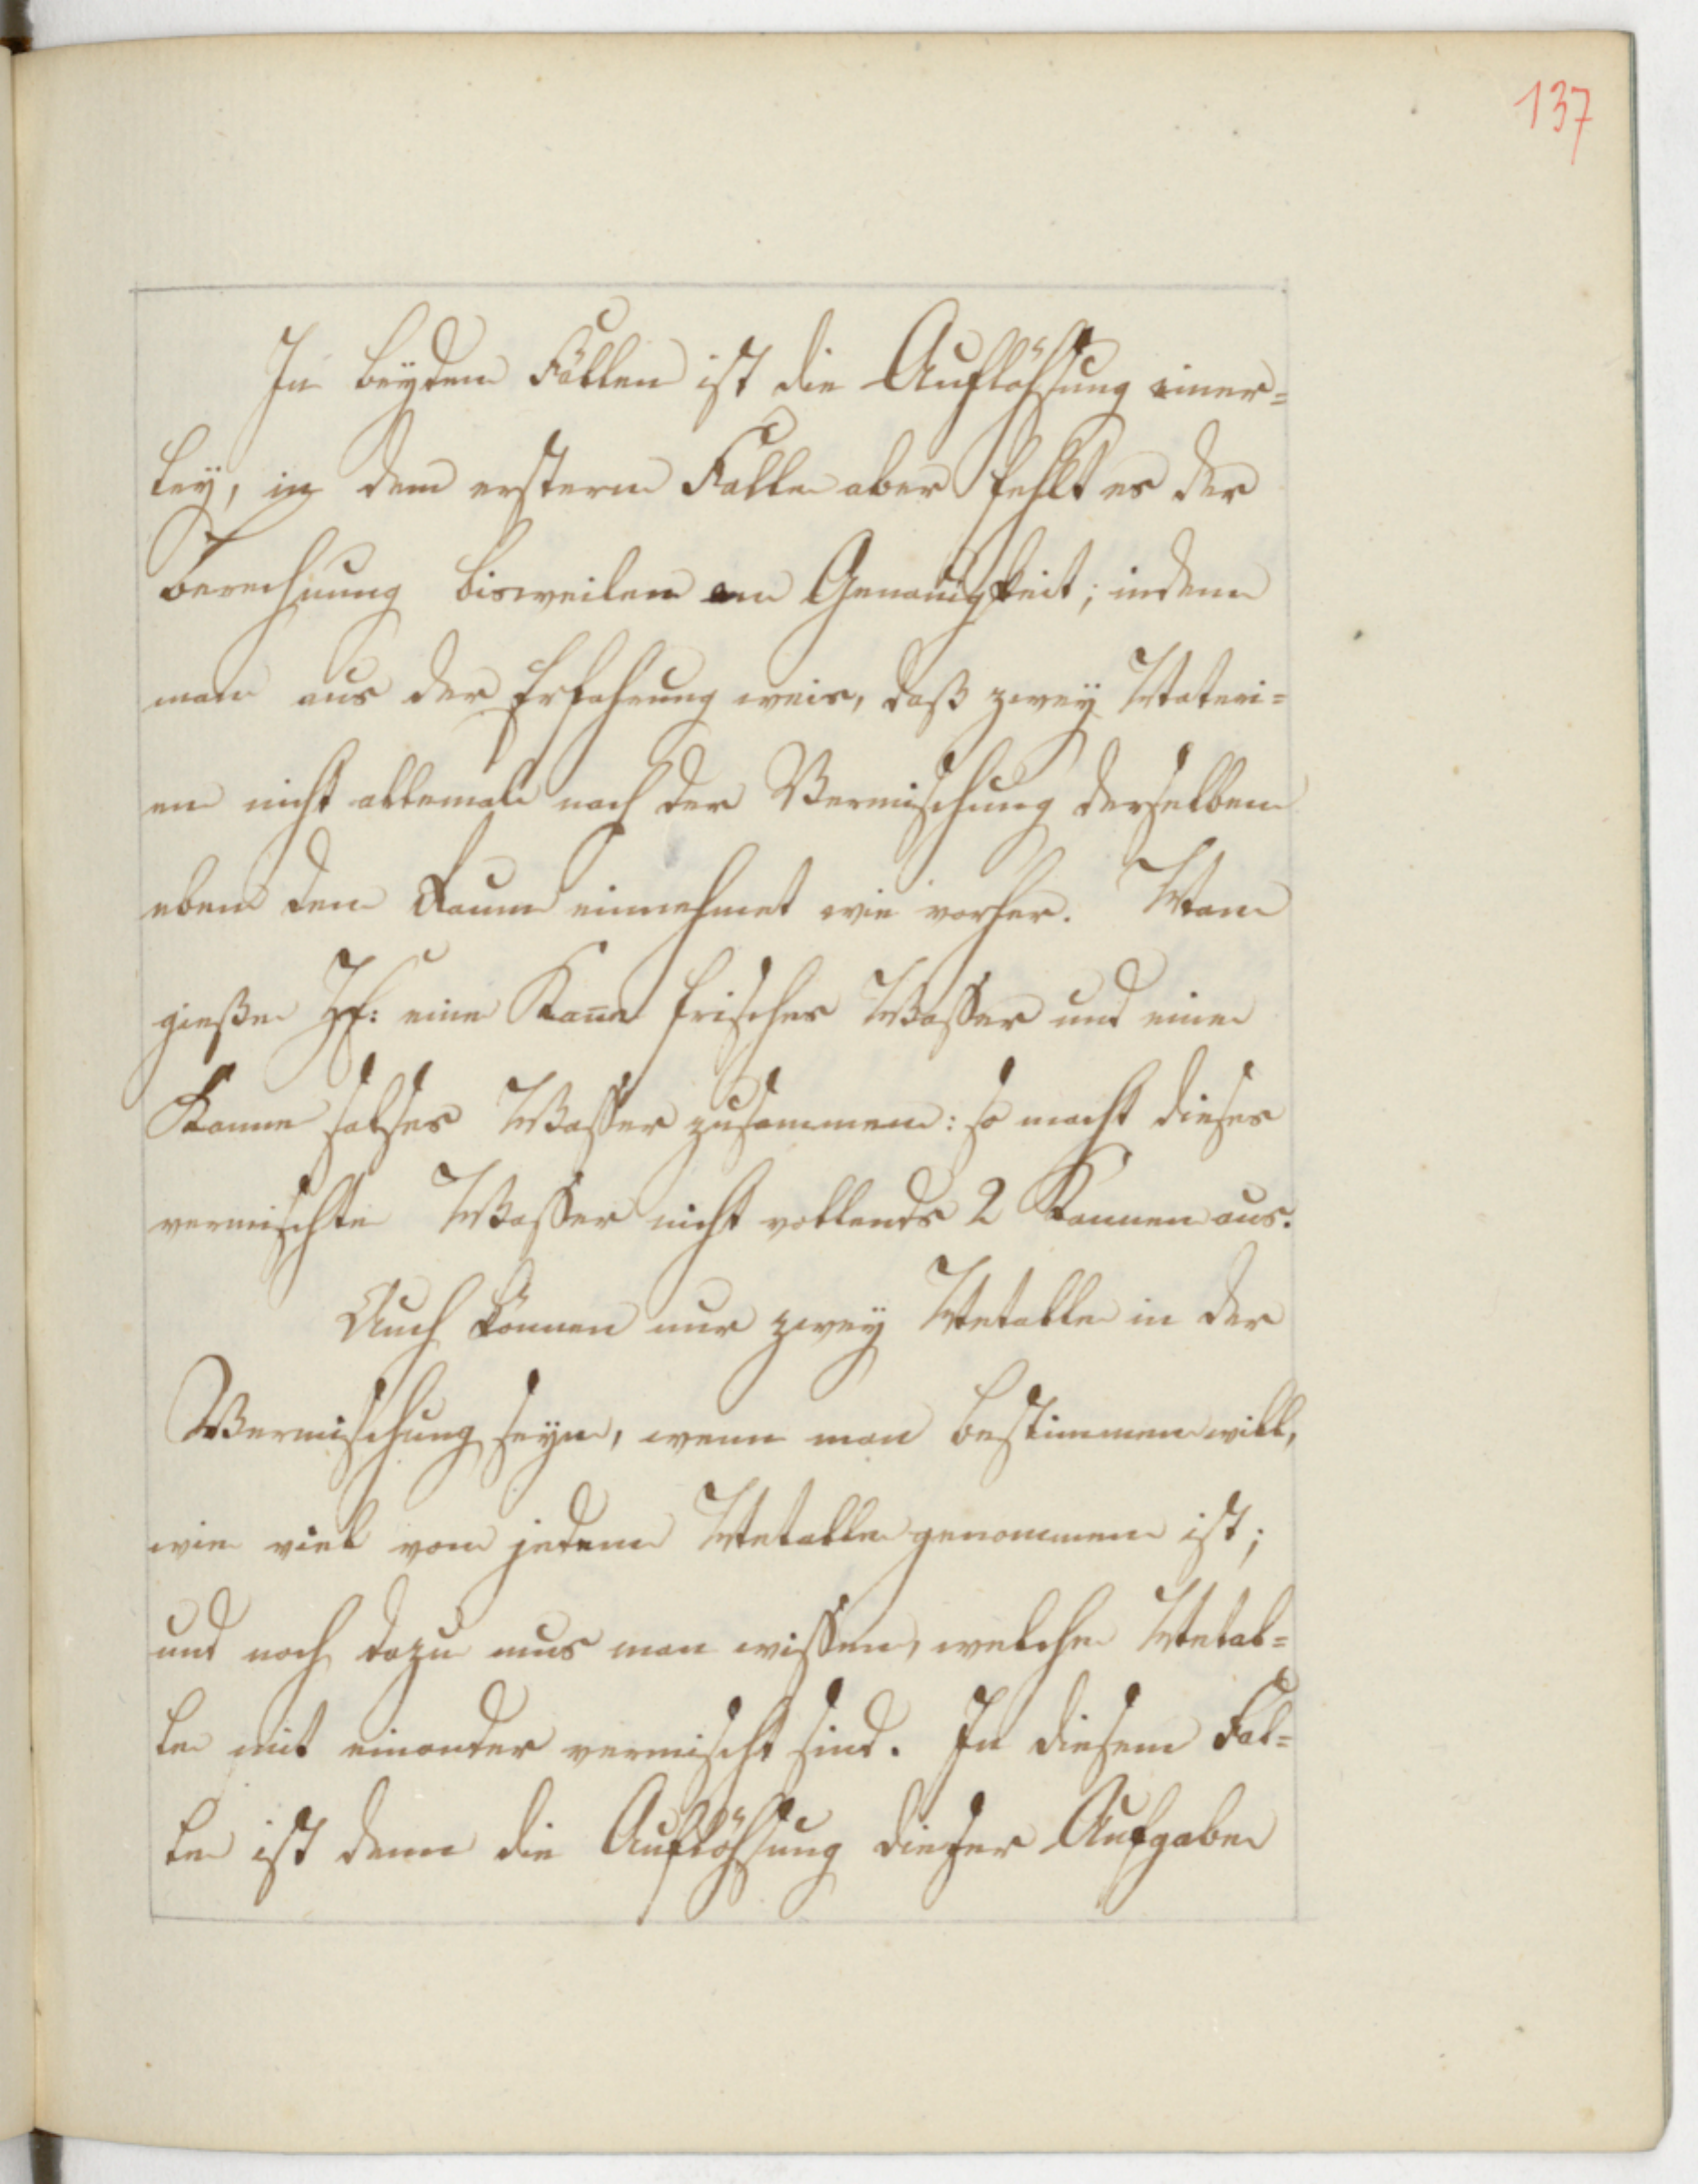 137
In beyden Fällen ist die Auflößung einer=
ley, in dem erstern Falle aber fehlt es der
Berechnung bisweilen an Genauigkeit; indem
man aus der Erfahrung weis, daß zwey Materi=
en nicht allemal nach der Vermischung derselben
eben den Raum einnehmet wie vorher. Man
gieße eine Kann frisches Waßer und eine
Kanne salses Waßer zusammen: so macht dieses
vermischte Waßer nicht vollends 2 Kannen aus.
Auch können nur zwey Metalle in der
Vermischung seyn, wenn man bestimmen will,
wie viel von jedem Metalle genommen ist;
und noch dazu mus man wißen, welche Metal=
le mit einander vermischt sind. In diesem Fal=
le ist denn die Auflößung dieser Aufgabe